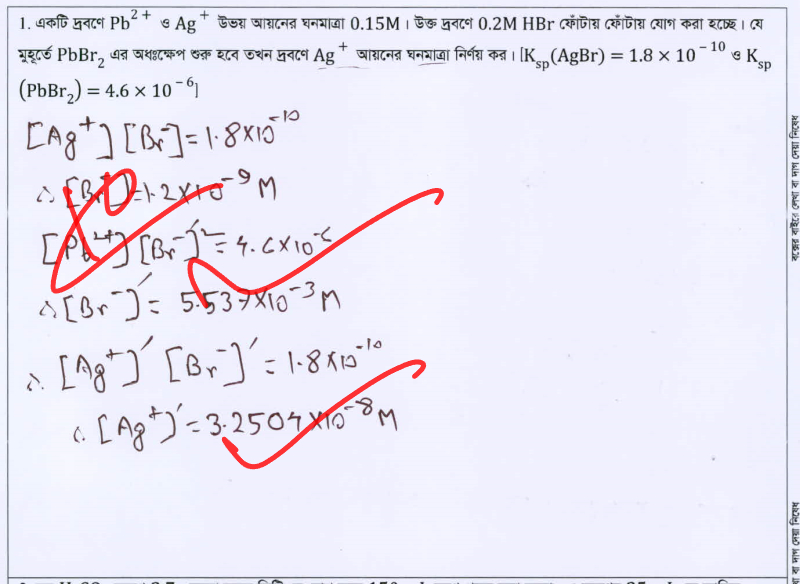 1. একটি দ্রবণে Pb²⁺ ও Ag⁺ উভয় আয়নের ঘনমাত্রা 0.15M। উক্ত দ্রবণে 0.2M HBr ফোঁটায় ফোঁটায় যোগ করা হচ্ছে। যে
মুহূর্তে PbBr₂ এর অধঃক্ষেপ শুরু হবে তখন দ্রবণে Ag⁺ আয়নের ঘনমাত্রা নির্ণয় কর। [Kₛₚ(AgBr) = 1.8 × 10⁻¹⁰ ও Kₛₚ
(PbBr₂) = 4.6 × 10⁻⁶]
[Ag⁺][Br⁻] = 1.8×10⁻¹⁰
∴ [Br⁻] = 1.2×10⁻⁹ M
[Pb²⁺][Br⁻]′² = 4.6×10⁻⁶
∴ [Br⁻]′ = 5.537×10⁻³ M
∴ [Ag⁺]′ [Br⁻]′ = 1.8×10⁻¹⁰
∴ [Ag⁺]′ = 3.2504×10⁻⁸ M
বক্সের বাইরে লেখা বা দাগ দেয়া নিষেধ
বা দাগ দেয়া নিষেধ